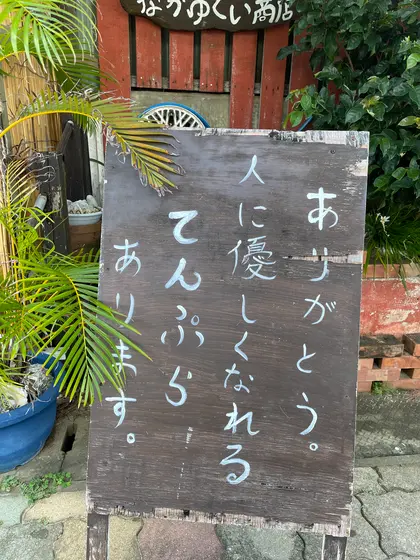 なかゆくい商店
ありがとう。
人に優しくなれる
てんぷら
あります。